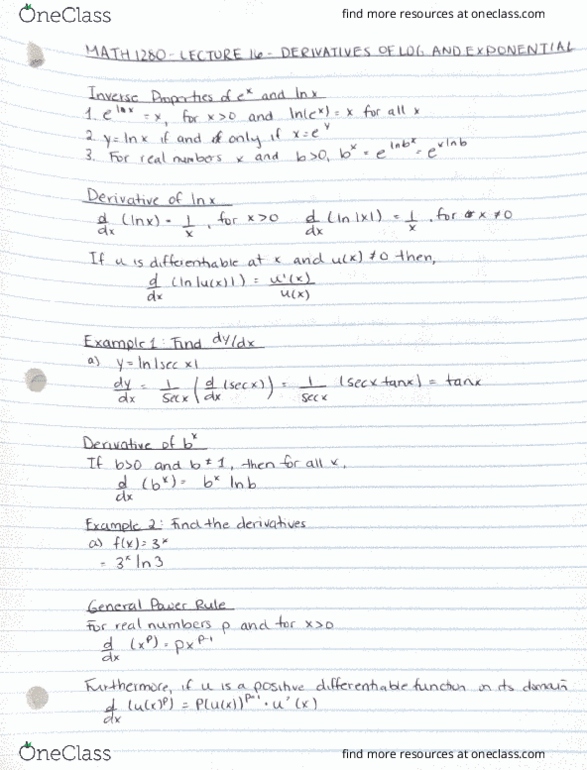 OneClass
find more resources at oneclass.com
MATH 1280 - LECTURE 16 - DERIVATIVES OF LOG AND EXPONENTIAL
Inverse Properties of e^x and ln x
1. e^(ln x) = x, for x>0 and ln(e^x) = x for all x
2. y = ln x if and only if x = e^y
3. For real numbers x and b>0, b^x = e^(ln b^x) = e^(x ln b)
Derivative of ln x
d/dx (ln x) = 1/x, for x>0 d/dx (ln |x|) = 1/x, for x ≠ 0
If u is differentiable at x and u(x) ≠ 0 then,
d/dx (ln |u(x)|) = u'(x)/u(x)
Example 1: Find dy/dx
a) y = ln |sec x|
dy/dx = 1/sec x (d/dx (sec x)) = 1/sec x (sec x tan x) = tan x
Derivative of b^x
If b>0 and b ≠ 1, then for all x,
d/dx (b^x) = b^x ln b
Example 2: Find the derivatives
a) f(x) = 3^x
= 3^x ln 3
General Power Rule
For real numbers p and for x>0
d/dx (x^p) = px^(p-1)
Furthermore, if u is a positive differentiable function on its domain
d/dx (u(x)^p) = p(u(x))^(p-1) · u'(x)
OneClass
find more resources at oneclass.com